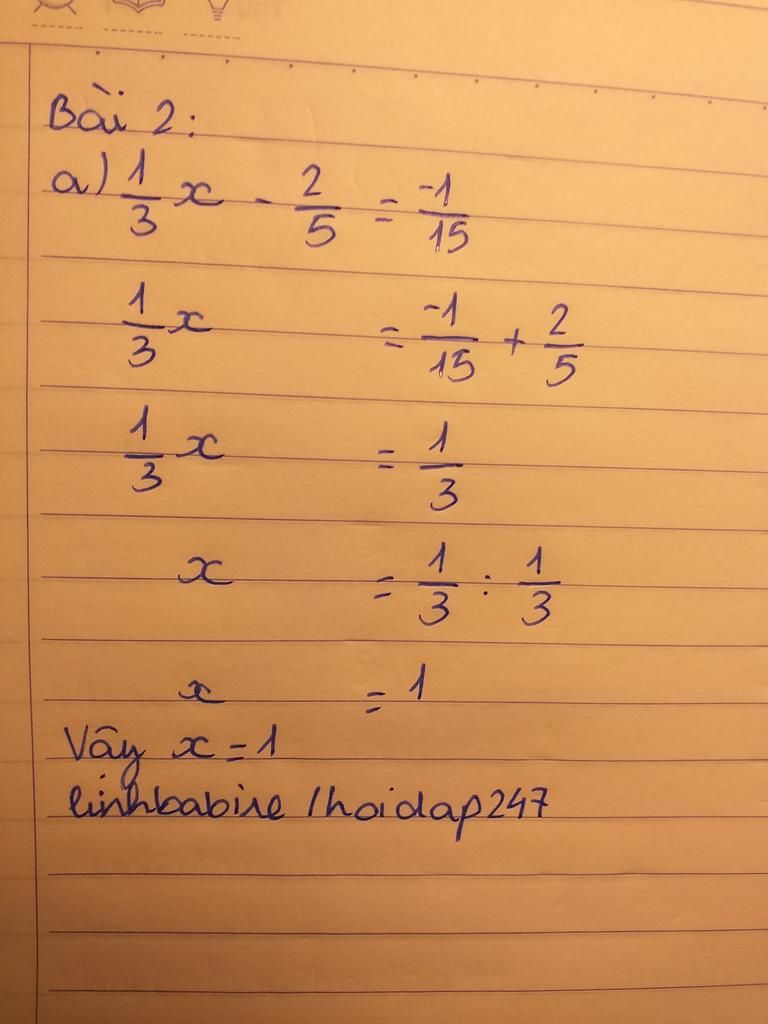 Bài 2:
a) 1/3 x - 2/5 = -1/15
1/3 x = -1/15 + 2/5
1/3 x = 1/3
x = 1/3 : 1/3
x = 1
Vậy x = 1
linhbabire /hoidap247